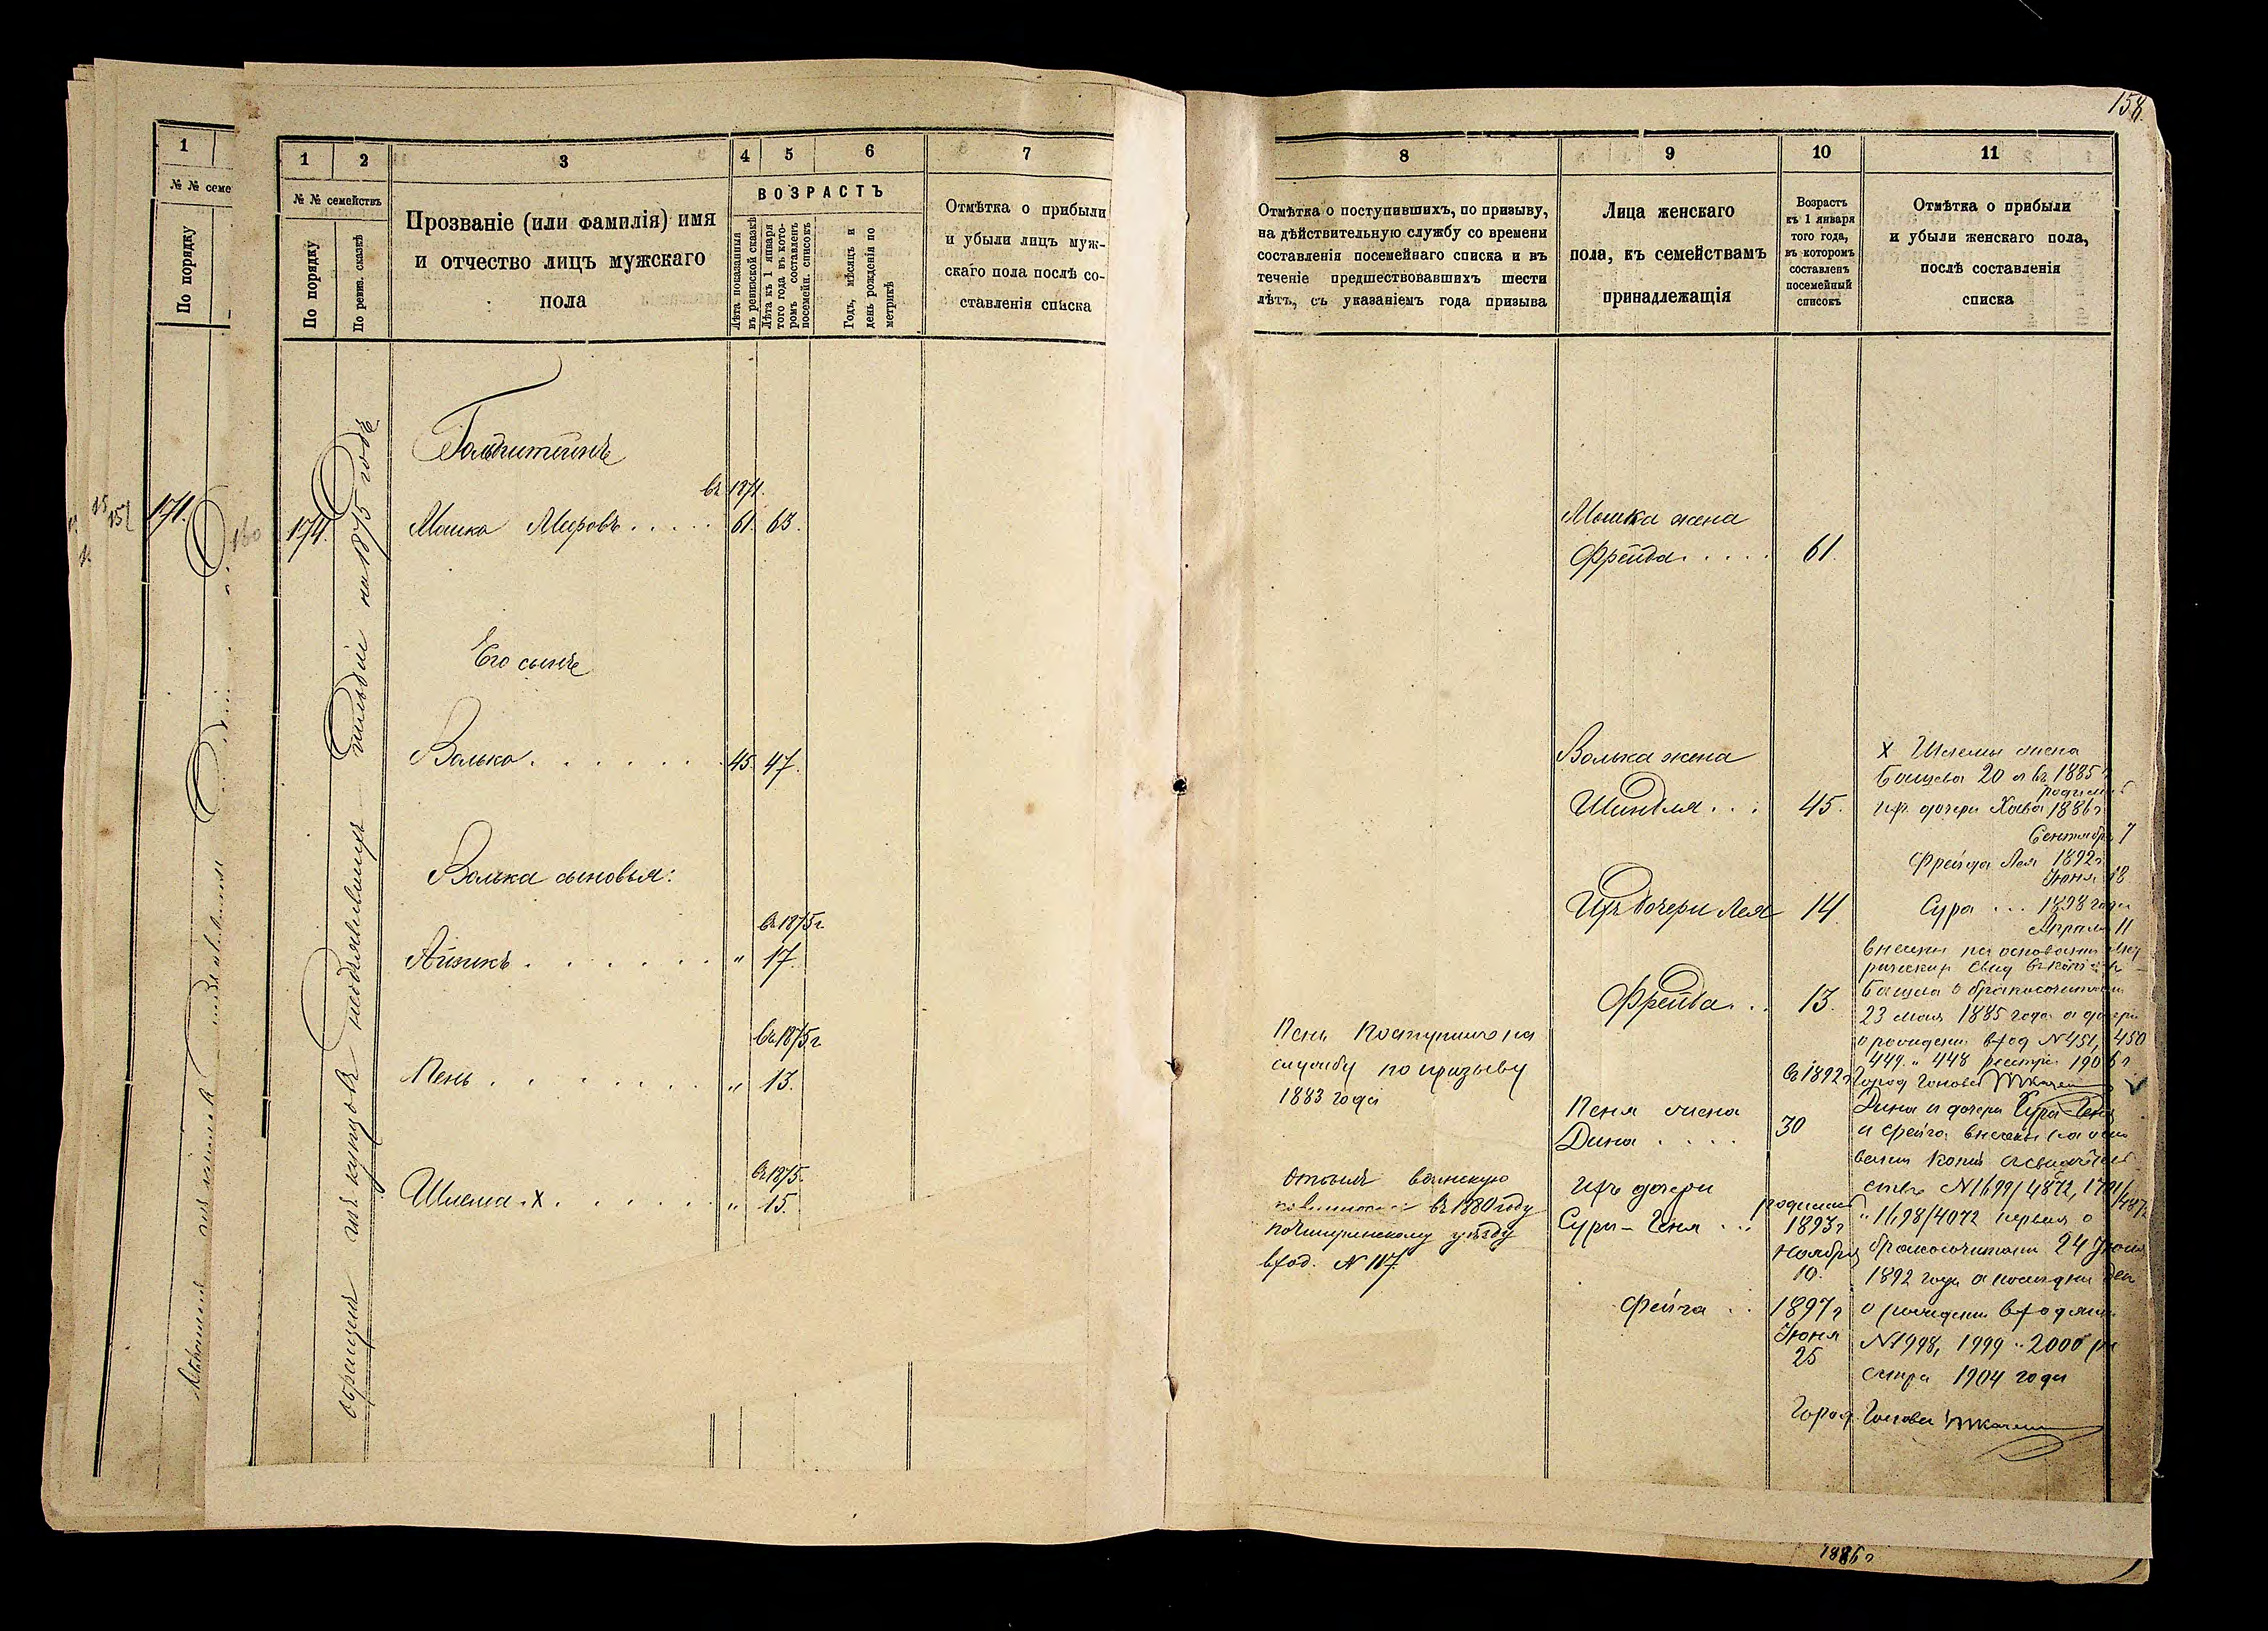 158
1
№ № семе
По порядку
171.
160
15
151
1
2
3
4
5
6
7
№ № семействъ
По порядку
По ревиз. сказкѣ
Прозваніе (или фамилія) имя
и отчество лицъ мужскаго
пола
ВОЗРАСТЪ
Лѣта показанныя
въ ревизской сказкѣ
Лѣта къ 1 января
того года въ кото-
ромъ составленъ
посемейн. списокъ
Годъ, мѣсяцъ и
день рожденія по
метрикѣ
Отмѣтка о прибыли
и убыли лицъ муж-
скаго пола послѣ со-
ставленія списка
174.
обращенъ изъ купцовъ необъявившихъ на 1875 годъ
Гольдштинъ
въ 1871.
Мошко Мееровъ . . . . . 61. 63.
Его сынъ
Волько . . . . . . . 45. 47.
Волька сыновья:
въ 1875 г.
Айзикъ . . . . . . . " 17.
въ 1875 г.
Пень . . . . . . . " 13.
въ 1875.
Шлема . X . . . . . . " 15.
8
9
10
11
Отмѣтка о поступившихъ, по призыву,
на дѣйствительную службу со времени
составленія посемейнаго списка и въ
теченіе предшествовавшихъ шести
лѣтъ, съ указаніемъ года призыва
Лица женскаго
пола, къ семействамъ
принадлежащія
Возрастъ
къ 1 января
того года,
въ которомъ
составленъ
посемейный
списокъ
Отмѣтка о прибыли
и убыли женскаго пола,
послѣ составленія
списка
Мошка жена
Фрейда . . . . 61.
Волька жена
Шиндля . . . 45.
Ихъ дочери Лея 14.
Фрейда . . 13.
Пень поступилъ на
службу по призыву
1883 года
въ 1892 г.
Пеня жена
Дина . . . . 30
Отбылъ воинскую
въ 1880 году
по Чигиринскому уѣзду
вход. N 117.
Ихъ дочери
Сура-Геня . . .
родилась
1893 г
Ноября
10.
Фейга . . 1897 г
Июня
25
X Шлемы жена
Башева 20 л въ 1885 г
родились
их дочери Хава 1886 г
Сентября 7
Фрейда Лея 1892 г.
Июня 18
Сура . . . 1898 года
Апреля 11
внесены на основании мет
рических свид
Башева о бракосочетании
23 мая 1885 года а дочери
о рождении вход N 451, 450
449 и 448 реестра 1906 г
Город Голова
Дина и дочери Сура Геня
и Фейга внесены на осно
вании копий свидетель
ствъ N 1699/4872, 1701/487
" 1698/4072 первая о
бракосочетании 24 Июня
1892 года а последния две
о рождении входящ.
N 1998, 1999 и 2000 ре
естра 1904 года
Город. Голова
1886 г